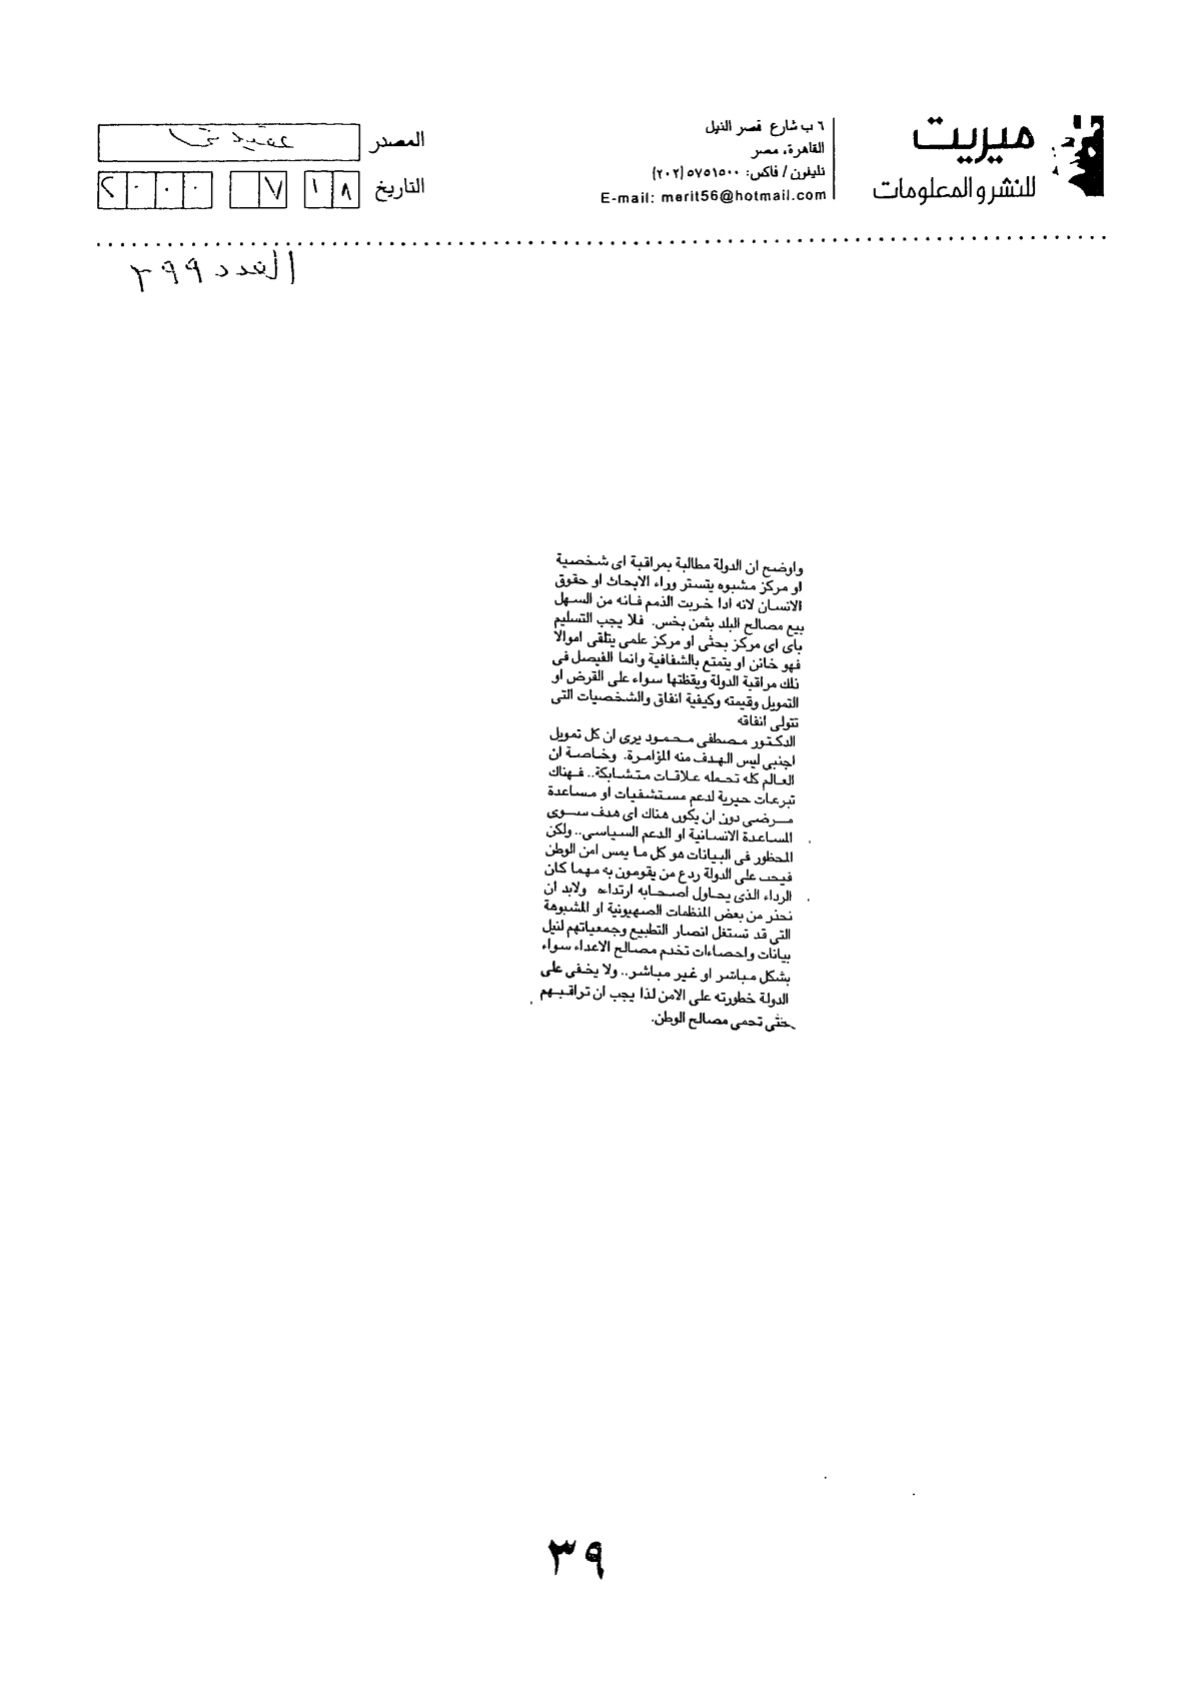 ميريت
للنشر والمعلومات
٦ ب شارع قصر النيل
القاهرة، مصر
تليفون / فاكس: ٥٧٥١٥٠٠ (٢٠٢)
E-mail: merit56@hotmail.com
المصدر عقيدتى
التاريخ ١٨ ٧ ٢٠٠٠
العدد ٣٩٩
واوضح ان الدولة مطالبة بمراقبة اى شخصية
او مركز مشبوه يتستر وراء الابحاث او حقوق
الانسان لانه اذا خربت الذمم فانه من السهل
بيع مصالح البلد بثمن بخس. فلا يجب التسليم
باى اى مركز بحثى او مركز علمى يتلقى اموالا
فهو خائن او يتمتع بالشفافية وانما الفيصل فى
ذلك مراقبة الدولة ويقظتها سواء على القرض او
التمويل وقيمته وكيفية انفاق والشخصيات التى
تتولى انفاقه
الدكتور مصطفى محمود يرى ان كل تمويل
اجنبى ليس الهدف منه المؤامرة. وخاصة ان
العالم كله تحمله علاقات متشابكة.. فهناك
تبرعات خيرية لدعم مستشفيات او مساعدة
مرضى دون ان يكون هناك اى هدف سوى
المساعدة الانسانية او الدعم السياسى.. ولكن
المحظور فى البيانات هو كل ما يمس امن الوطن
فيجب على الدولة ردع من يقومون به مهما كان
الرداء الذى يحاول اصحابه ارتداءه ولابد ان
نحذر من بعض المنظمات الصهيونية او المشبوهة
التى قد تستغل انصار التطبيع وجمعياتهم لنيل
بيانات واحصاءات تخدم مصالح الاعداء سواء
بشكل مباشر او غير مباشر.. ولا يخفى على
الدولة خطورته على الامن لذا يجب ان تراقبهم
حتى تحمى مصالح الوطن.
٣٩